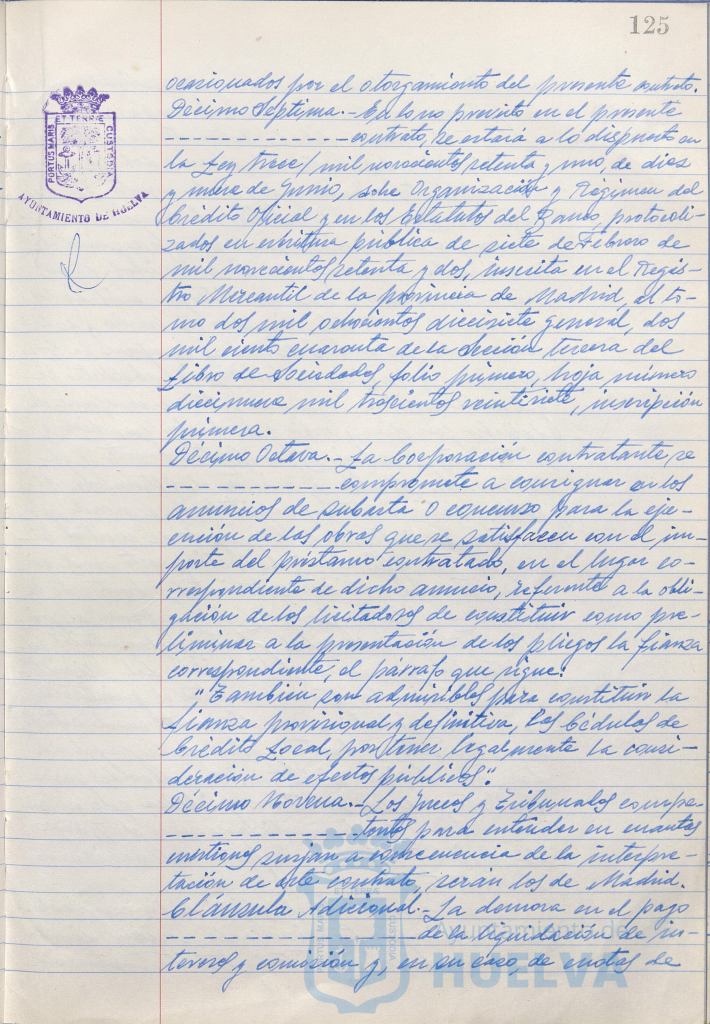 125
PORTUS MARIS
ET TERRÆ
CUSTODIA
AYUNTAMIENTO DE HUELVA
ocasionados por el otorgamiento del presente contrato.
Décimo Séptima.- En lo no previsto en el presente
contrato, se estará a lo dispuesto en
la Ley trece/mil novecientos setenta y uno, de diez
y nueve de Junio, sobre Organización y Régimen del
Crédito Oficial y en los Estatutos del Banco, protocoli-
zados en escritura pública de siete de Febrero de
mil novecientos setenta y dos, inscrita en el Regis-
tro Mercantil de la provincia de Madrid, al to-
mo dos mil ochocientos diecisiete general, dos
mil ciento cuarenta de la Sección tercera del
Libro de Sociedades, folio primero, hoja número
diecinueve mil trescientos veintisiete, inscripción
primera.
Décimo Octava.- La Corporación contratante se
compromete a consignar en los
anuncios de subasta o concurso para la eje-
cución de las obras que se satisfacen con el im-
porte del préstamo contratado, en el lugar co-
rrespondiente de dicho anuncio, referente a la obli-
gación de los licitadores de constituir como pre-
liminar a la presentación de los pliegos la fianza
correspondiente, el párrafo que sigue:
"También son admisibles para constituir la
fianza provisional y definitiva, las Cédulas de
Crédito Local, por tener legalmente la consi-
deración de efectos públicos".
Décimo Novena.- Los Jueces y Tribunales compe-
tentes para entender en cuantas
cuestiones surjan a consecuencia de la interpre-
tación de este contrato, serán los de Madrid.
Cláusula Adicional.- La demora en el pago
de la liquidación de in-
tereses y comisión y, en su caso, de cuotas de
Ayuntamiento de
HUELVA